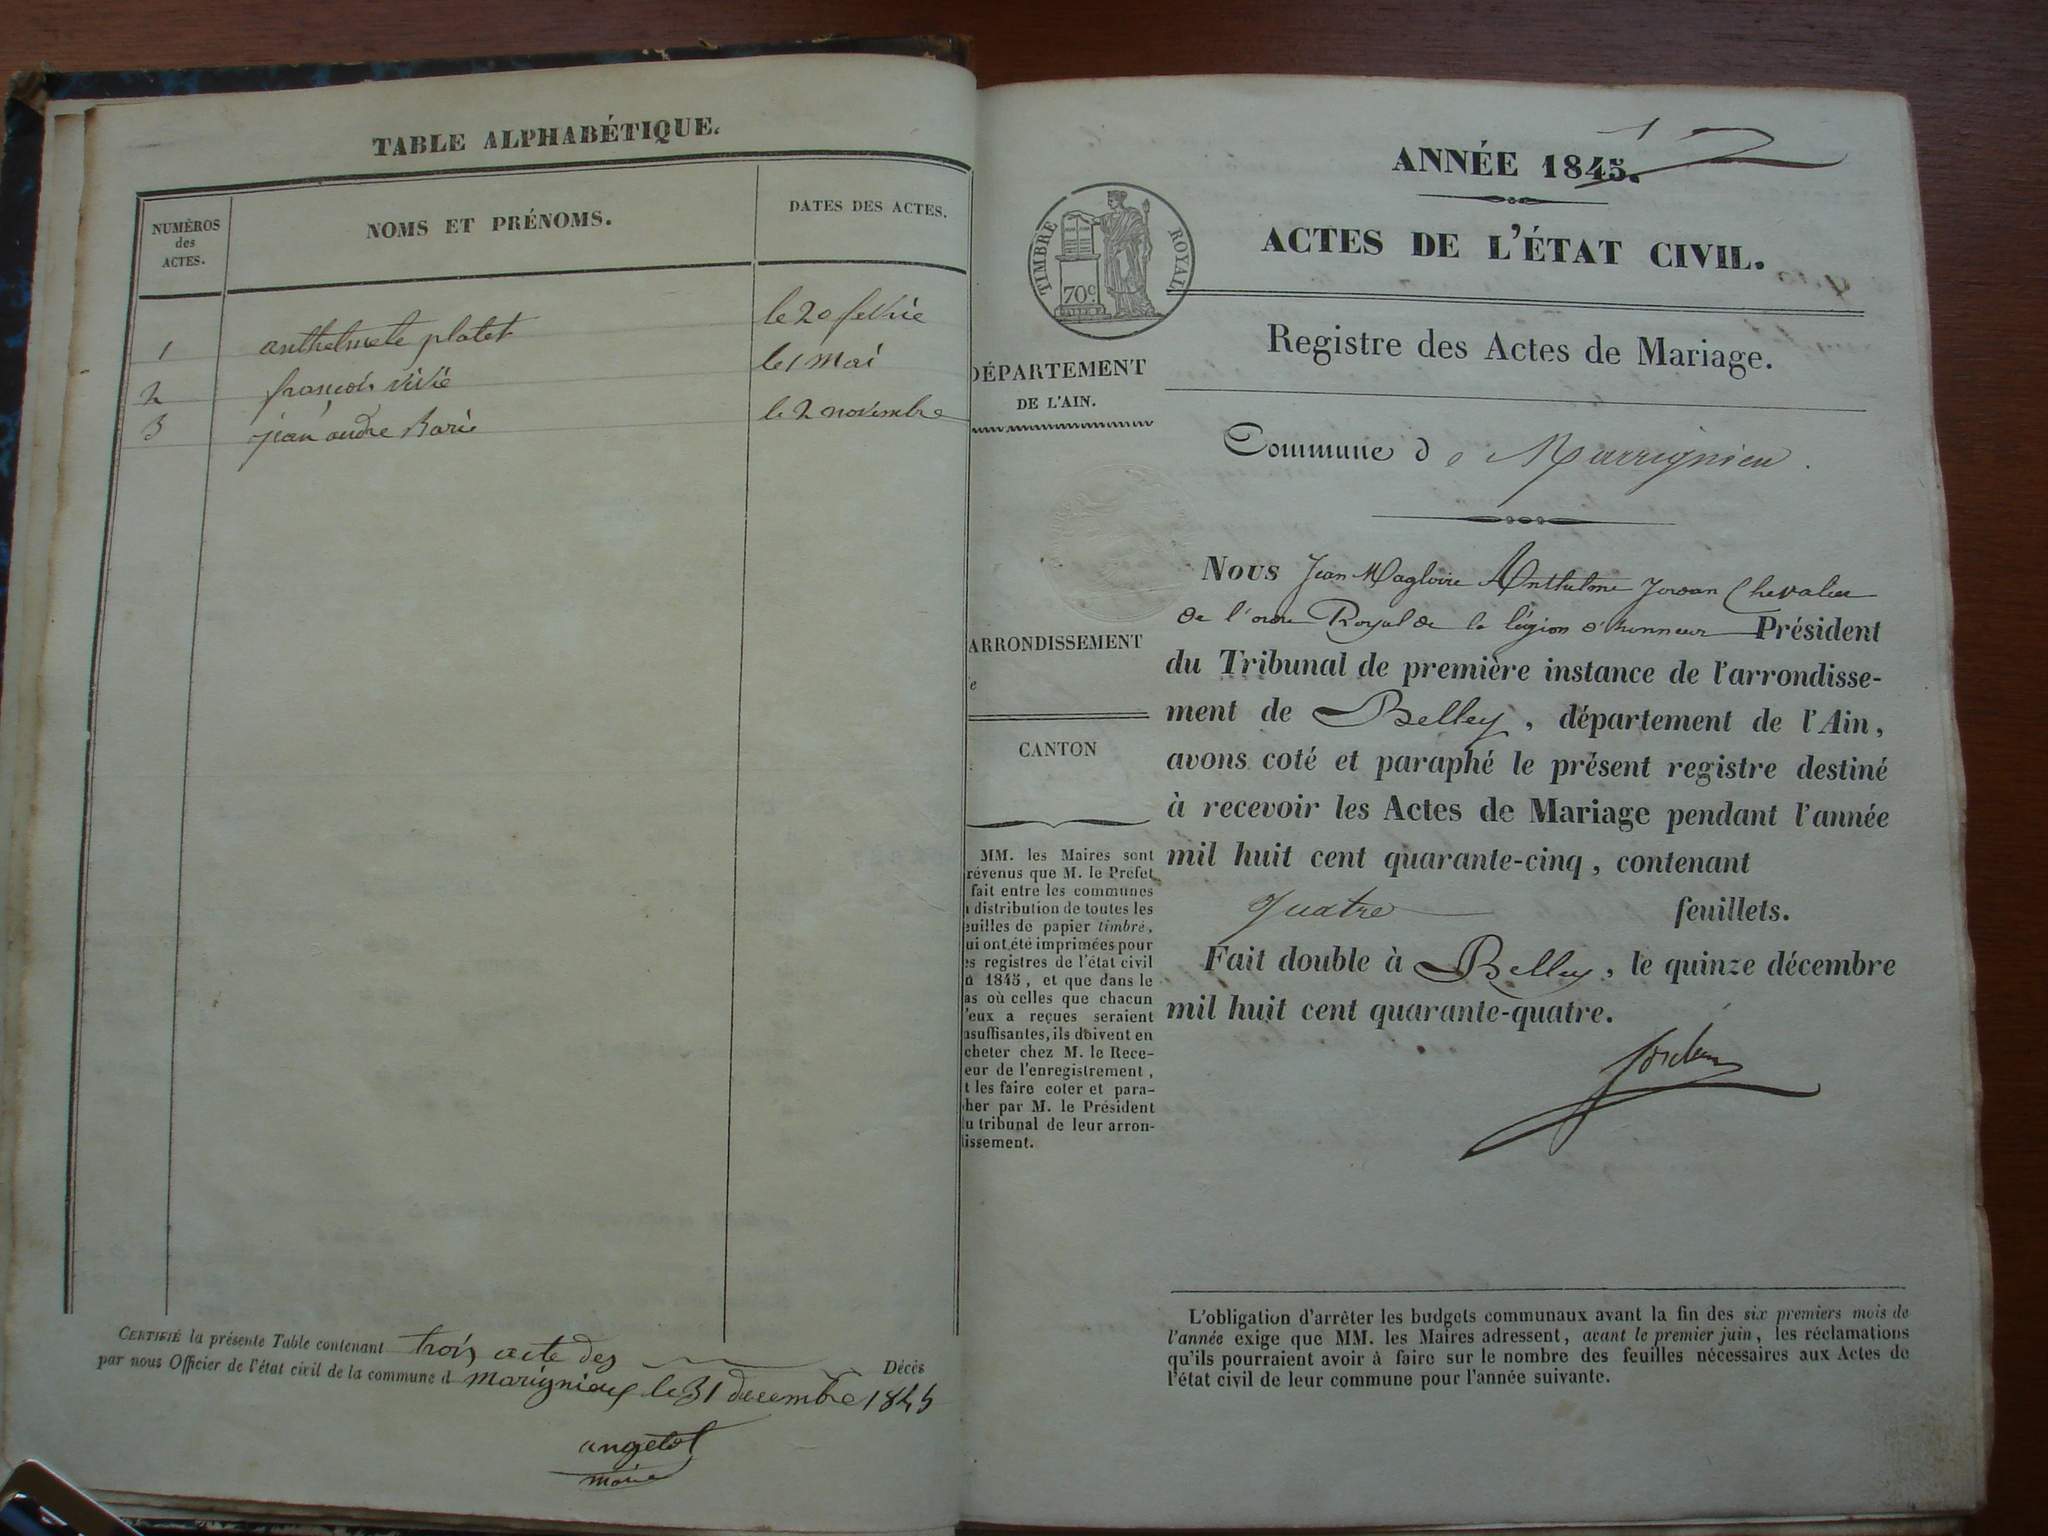 TABLE ALPHABÉTIQUE.
NUMÈROS
des
ACTES.
NOMS ET PRÉNOMS.
DATES DES ACTES.
1 anthelmete platet le 20 fevrie
2 françois vivie le 1 mai
3 jean andre Barie le 2 novembre
CERTIFIÉ la présente Table contenant trois acte des Décès
par nous Officier de l'état civil de la commune d marignieux le 31 decembre 1845
angetot
maire
ANNÉE 1845.
1
ACTES DE L'ÉTAT CIVIL.
TIMBRE ROYAL
70c.
Registre des Actes de Mariage.
DÉPARTEMENT
DE L'AIN.
Commune de Marrignieu.
ARRONDISSEMENT
e
CANTON
MM. les Maires sont
révenus que M. le Préfet
fait entre les communes
a distribution de toutes les
euilles de papier timbré,
ui ont été imprimées pour
es registres de l'état civil
n 1845, et que dans le
as où celles que chacun
'eux a reçues seraient
nsuffisantes, ils doivent en
cheter chez M. le Rece-
eur de l'enregistrement,
t les faire coter et para-
her par M. le Président
u tribunal de leur arron-
issement.
Nous Jean Magloire Anthelme Jordan Chevalier
de l'ordre Royal de la légion d'honneur Président
du Tribunal de première instance de l'arrondisse-
ment de Belley, département de l'Ain,
avons coté et paraphé le présent registre destiné
à recevoir les Actes de Mariage pendant l'année
mil huit cent quarante-cinq, contenant
quatre feuillets.
Fait double à Belley, le quinze décembre
mil huit cent quarante-quatre.
Jordan
L'obligation d'arrêter les budgets communaux avant la fin des six premiers mois de
l'année exige que MM. les Maires adressent, avant le premier juin, les réclamations
qu'ils pourraient avoir à faire sur le nombre des feuilles nécessaires aux Actes de
l'état civil de leur commune pour l'année suivante.